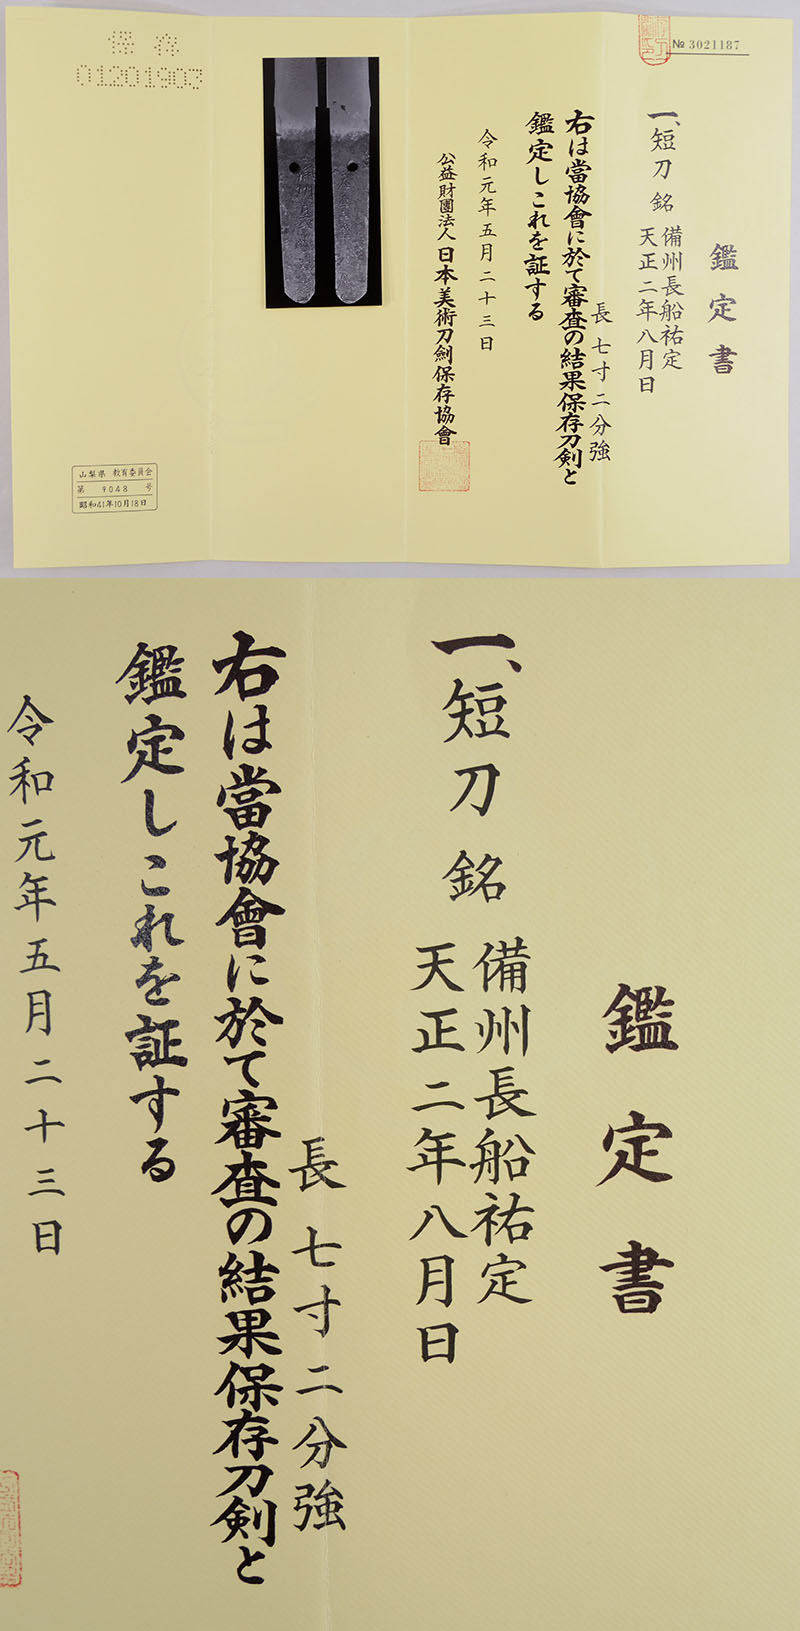 № 3021187
鑑定書
一、短刀 銘 備州長船祐定
天正二年八月日
長 七寸二分強
右は當協會に於て審査の結果保存刀剣と
鑑定しこれを証する
令和元年五月二十三日
公益財團法人 日本美術刀劍保存協會
保存
01201903
山梨県 教育委員会
第 9048 号
昭和41年10月18日
鑑定書
一、短刀 銘 備州長船祐定
天正二年八月日
長 七寸二分強
右は當協會に於て審査の結果保存刀剣と
鑑定しこれを証する
令和元年五月二十三日